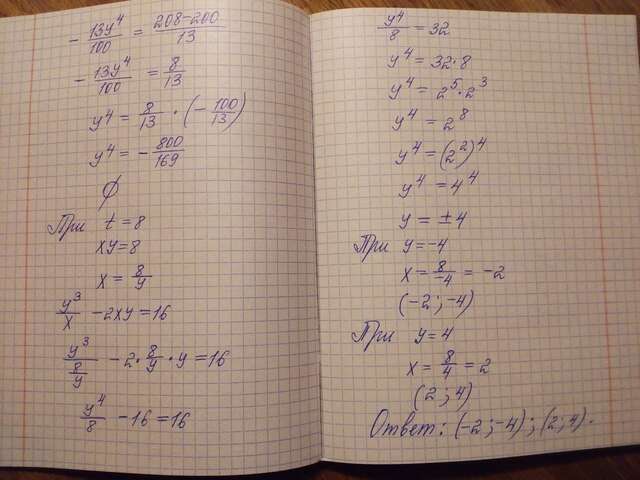 - 13y⁴/100 = 208-200/13
- 13y⁴/100 = 8/13
y⁴ = 8/13 · (- 100/13)
y⁴ = - 800/169
∅
При t = 8
xy = 8
x = 8/y
y³/x - 2xy = 16
y³/(8/y) - 2 · 8/y · y = 16
y⁴/8 - 16 = 16
y⁴/8 = 32
y⁴ = 32·8
y⁴ = 2⁵·2³
y⁴ = 2⁸
y⁴ = (2²)⁴
y⁴ = 4⁴
y = ±4
При y = -4
x = 8/-4 = -2
(-2; -4)
При y = 4
x = 8/4 = 2
(2; 4)
Ответ: (-2; -4); (2; 4).